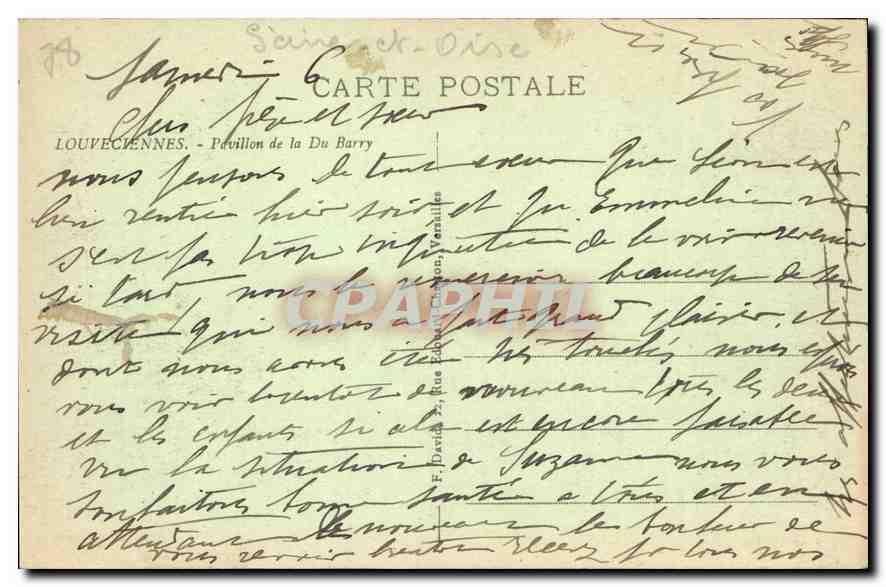 78 Seine-et-Oise
Samedi 6
CARTE POSTALE
Chers frère et sœur
LOUVECIENNES. - Pavillon de la Du Barry
nous pensons de tout cœur que Léon est
bien rentré hier soir et qu Emmeline ne
s'est pas trop inquiétée de le voir revenir
si tard, nous le remercions beaucoup de sa
visite qui nous a fait grand plaisir et
dont nous avons été très touchés nous espérons
vous voir bientôt de nouveau tous les deux
et les enfants si cela est encore faisable
vu la situation de Suzanne nous vous
souhaitons bonne santé a tous et en
attendant de nouveau le bonheur de
vous revoir recevez tous nos
F. David 22, Rue Edouard-Charton, Versailles
CPAPHIL